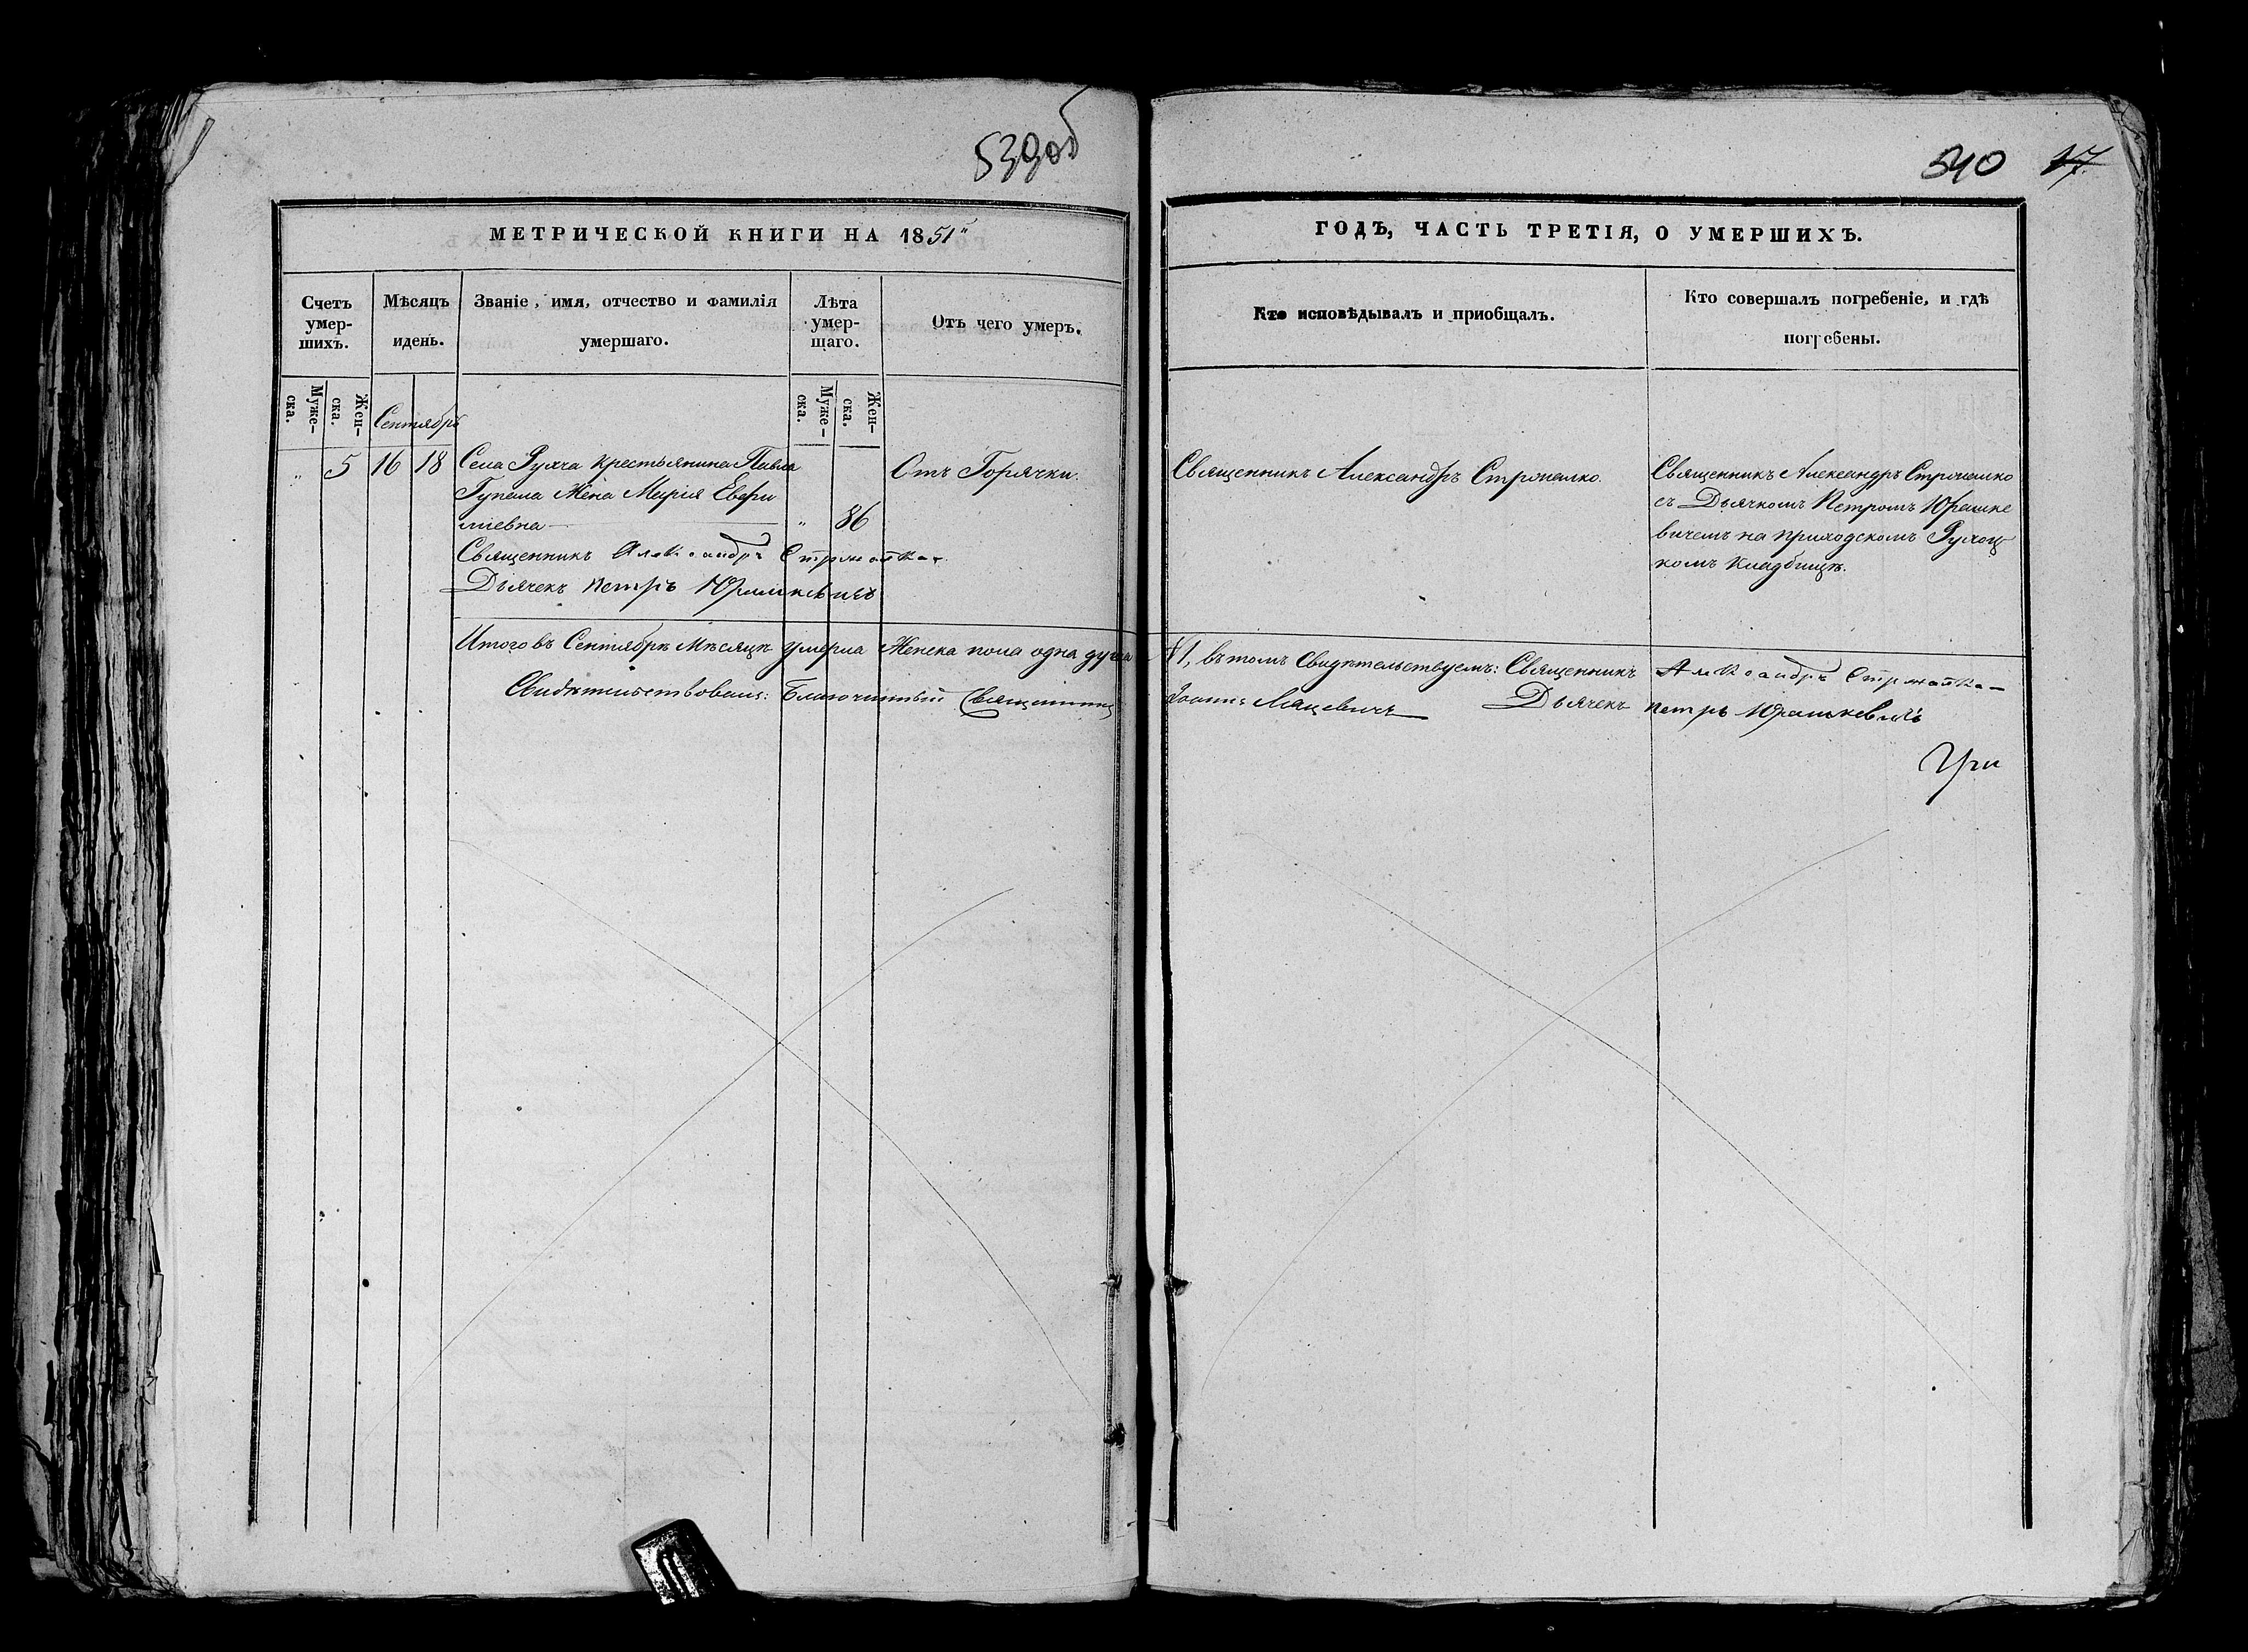 539об
МЕТРИЧЕСКОЙ КНИГИ НА 1851й
Счетъ умер-шихъ.
Мѣсяцъ и день.
Званіе, имя, отчество и фамилія умершаго.
Лѣта умер-шаго.
Отъ чего умеръ.
Муже-ска.
Жен-ска.
Сентябрь
Муже-ска.
Жен-ска.
" 5 16 18 Села Рухча крестьянина Павла
Гупала Жена Марія Евфи
міевна " 86
Отъ Горячки.
Священникъ Александръ
Дьячекъ Петръ Юрашкевичъ
Итого въ Сентябрѣ Мѣсяцѣ умерла Женска пола одна душа
Свидѣтельствовалъ: Благочинный Священникъ
540 17
ГОДЪ, ЧАСТЬ ТРЕТІЯ, О УМЕРШИХЪ.
Кто исповѣдывалъ и пріобщалъ.
Кто совершалъ погребеніе, и гдѣ
погребены.
Священникъ Александръ
Священникъ Александръ
съ Дьячкомъ Петромъ Юрашке
вичемъ на приходскомъ Рухоц
комъ кладбищѣ.
№ 1, въ томъ Свидѣтельствуемъ: Священникъ Александръ
Іоаннъ Мацевичъ Дьячекъ Петръ Юрашкевичъ